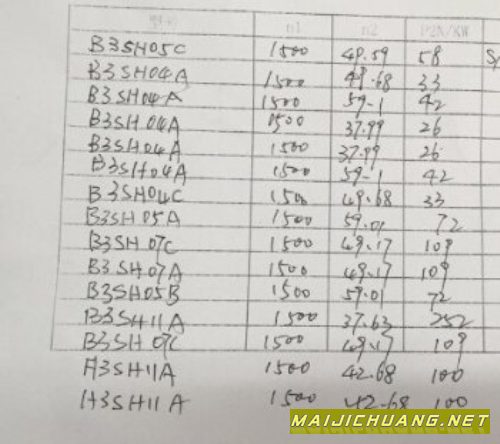 n1 n2 P2N/KW
B3SH05C 1500 49.59 58
B3SH04A 1500 49.68 33
B3SH04A 1500 59.1 42
B3SH04A 1500 37.99 26
B3SH04A 1500 37.99 26
B3SH04A 1500 59.1 42
B3SH04C 1500 49.68 33
B3SH05A 1500 59.01 72
B3SH07C 1500 49.17 109
B3SH07A 1500 49.17 109
B3SH05B 1500 59.01 72
B3SH11A 1500 37.63 252
B3SH07C 1500 49.17 109
H3SH11A 1500 42.68 100
H3SH11A 1500 42.68 100
MAIJICHUANG.NET